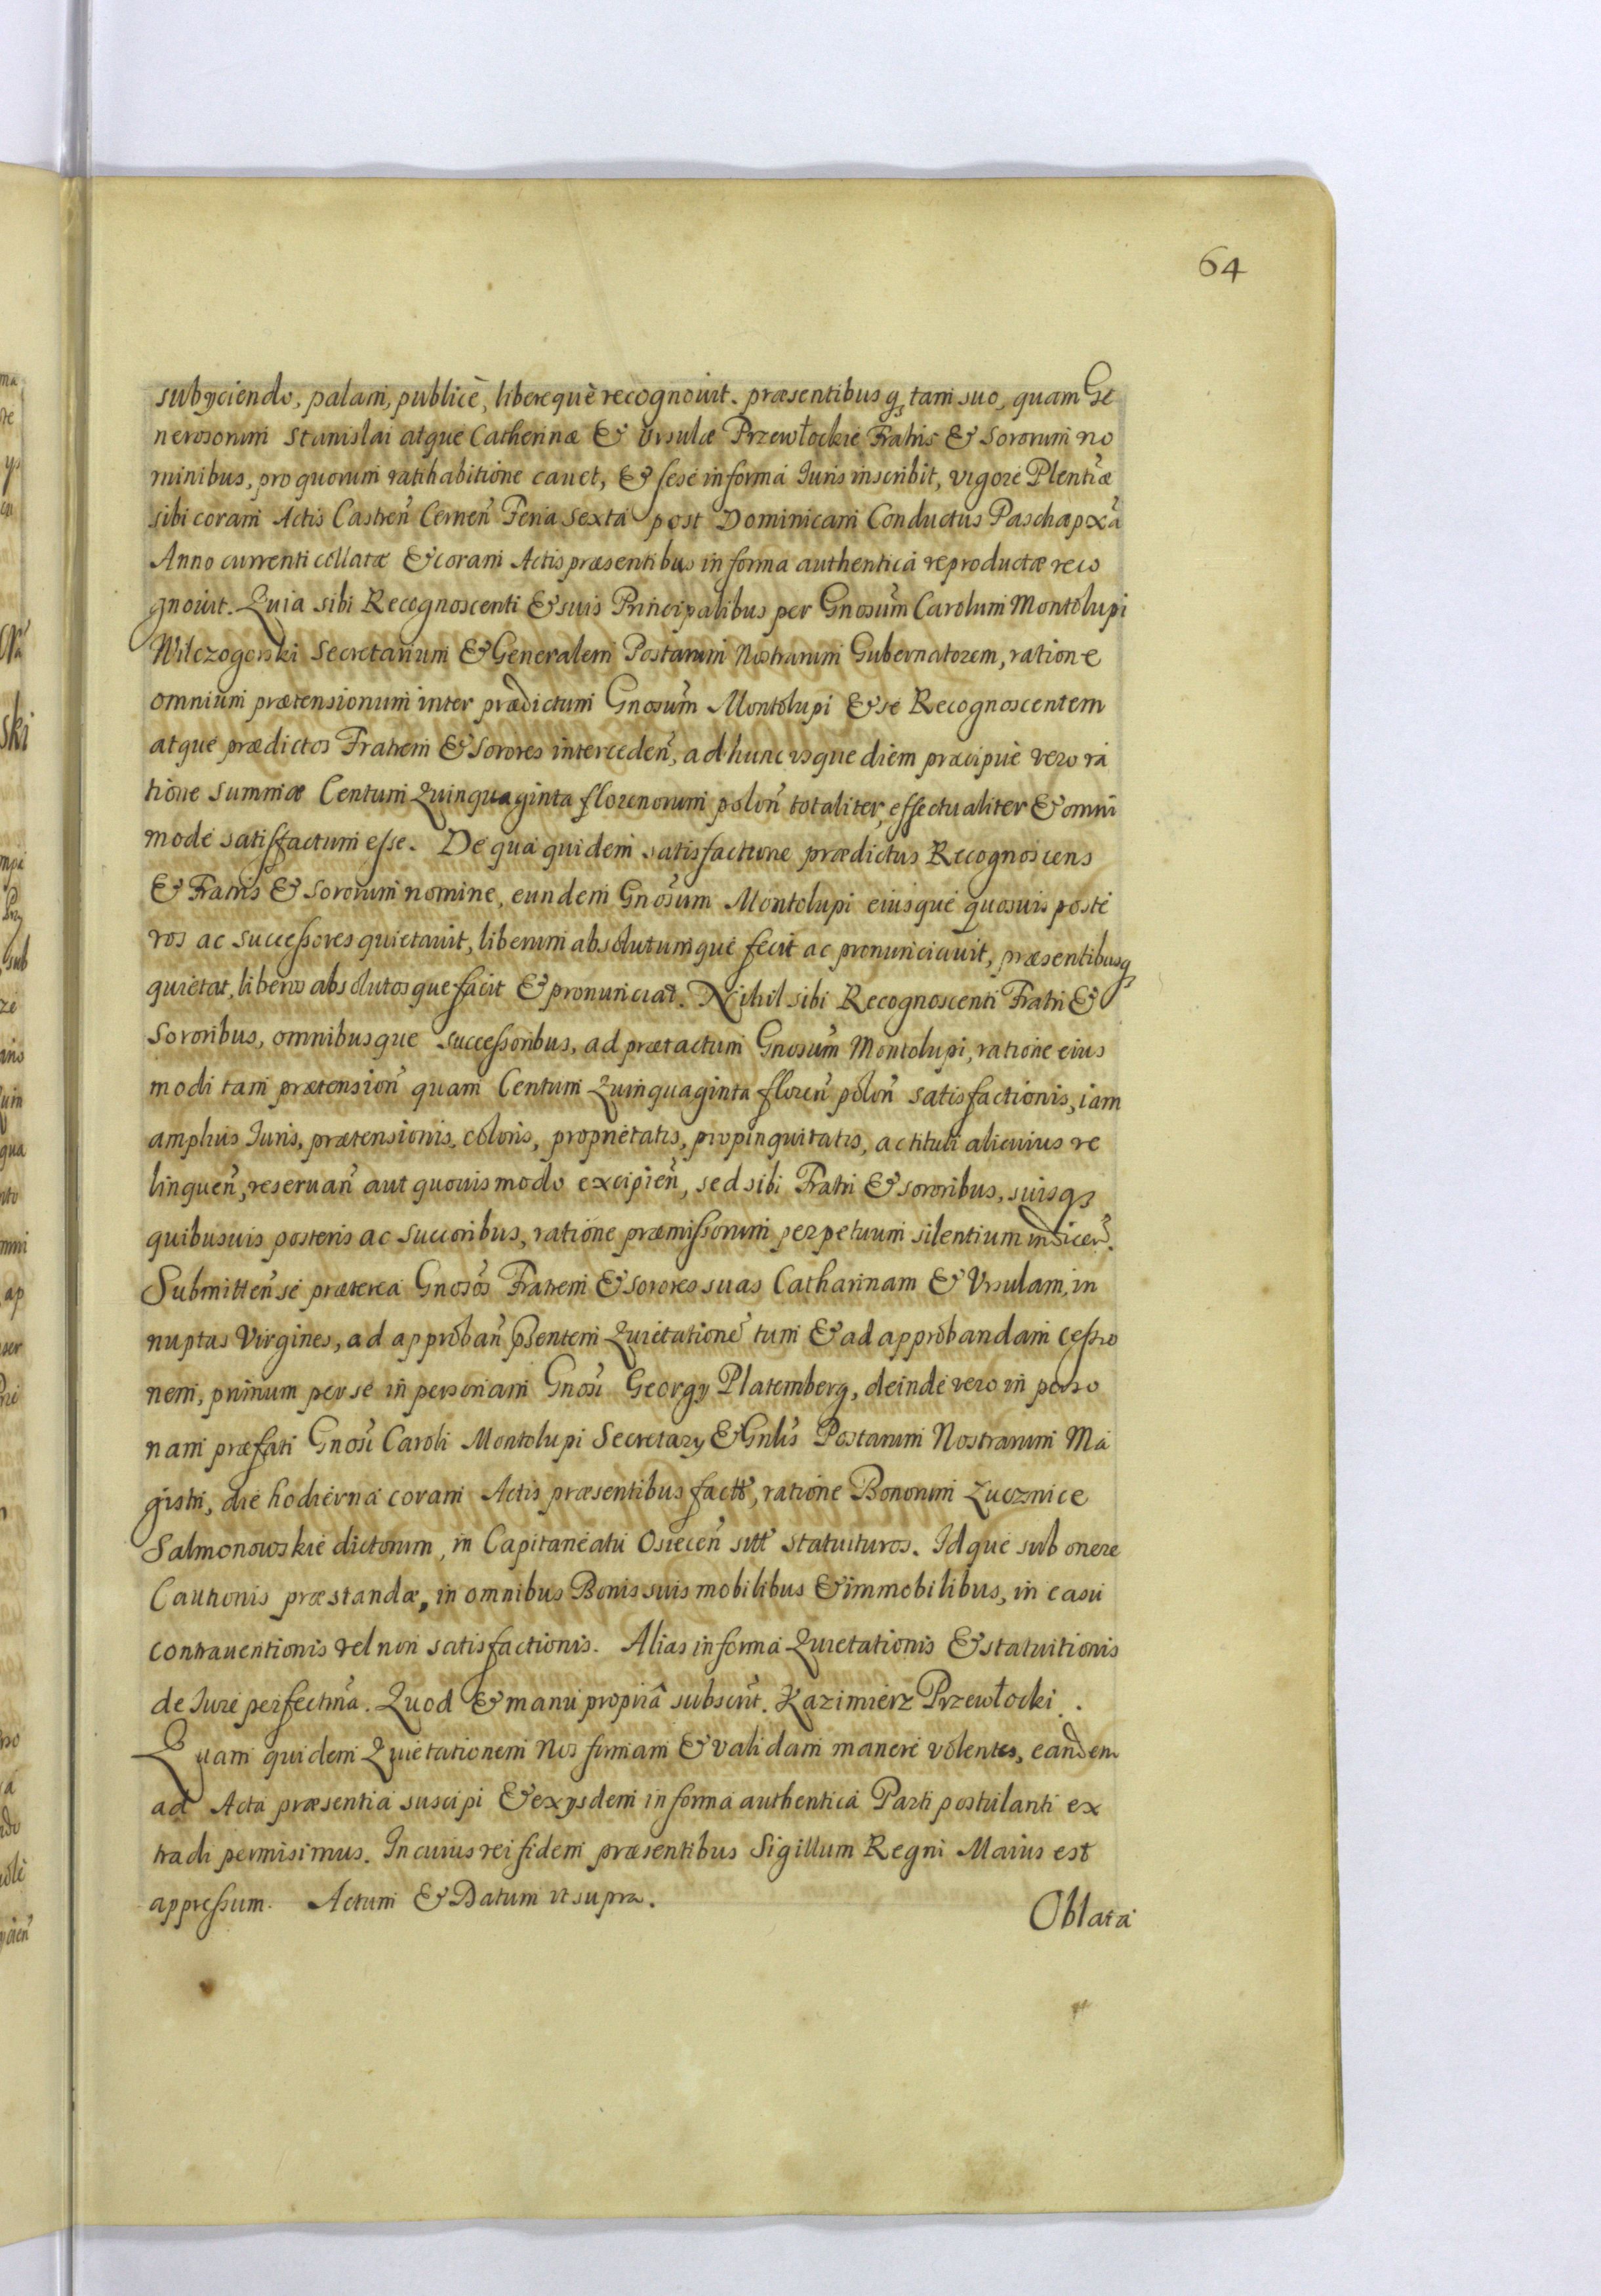 64
subijciendo, palam, publicè, libereque recognovit. præsentibusq₃ tam suo, quam Ge
nerosorum Stanislai atque Catherinæ & Ursulæ Przewłockie Fratris & Sororum no
minibus, pro quorum ratihabitione cauet, & sese in forma Iuris inscribit, vigore Plentiæ
sibi coram Actis Castren̄ Cernen̄ Feria Sexta post Dominicam Conductus Paschæ pxa̅
Anno currenti collatæ & coram Actis præsentibus in forma authentica reproductæ reco
gnouit. Quia sibi Recognoscenti & suis Principalibus per Gnosum̄ Carolum Montolupi
Wilczogorski Secretarium & Generalem Postarum Nostrarum Gubernatorem, ratione
omnium prætensionum inter prædictum Gnosum̄ Montolupi & se Recognoscentem
atque prædictos Fratrem & Sorores interceden̄, ad hunc usque diem præcipuè vero ra
tione summæ Centum Quinquaginta florenorum polon̄ totaliter, effectualiter & omni
mode satisfactum esse. De qua quidem satisfactione prædictus Recognoscens
& Fratris & Sororum nomine, eundem Gnosum̄ Montolupi eiusque quosuis poste
ros ac successores quietauit, liberum absolutumque fecit ac pronunciauit, præsentibusq₃
quietat, liberos absolutosque facit & pronunciat. Nihil sibi Recognoscenti Fratri &
Sororibus, omnibusque successoribus, ad prætactum Gnosum̄ Montolupi, ratione eius
modi tam prætension̄ quam Centum Quinquaginta floren̄ polon̄ satisfactionis, iam
amplius Iuris, prætensionis, coloris, proprietatis, propinquitatis, ac tituli alicuius re
linquen̄, reseruan̄ aut quouis modo excipien̄, sed sibi Fratri & sororibus, suisq₃
quibusuis posteris ac succoribus, ratione præmissorum perpetuum silentium indicen̄.
Submitten̄ se præterea Gnosos̄ Fratrem & sorores suas Catharinam & Ursulam, in
nuptas Virgines, ad approban̄ pn̄tem Quietatione̅ tum & ad approbandam cessio
nem, primum per se in personam Gnosi̅ Georgij Platemberg, deinde vero in perso
nam præfati Gnosi̅ Caroli Montolupi Secretarij & Gnlis̅ Postarum Nostrarum Ma
gistri, die hodierna coram Actis præsentibus factt, ratione Bonorum Lucznice
Salmonowskie dictorum, in Capitaneatu Osiecen̄ sitt statuituros. Idque sub onere
Cautionis præstandæ, in omnibus Bonis suis mobilibus & immobilibus, in casu
contrauentionis vel non satisfactionis. Alias in forma Quietationis & statuitionis
de Iure perfectma̅. Quod & manu propriâ subscrit̅. Kazimierz Przewłocki.
Quam quidem Quietationem Nos firmam & validam manere volentes, eandem
ad Acta præsentia suscipi & ex ijsdem in forma authentica Parti postulanti ex
tradi permisimus. In cuius rei fidem præsentibus Sigillum Regni Maius est
appressum. Actum & Datum ut supra.
Oblata